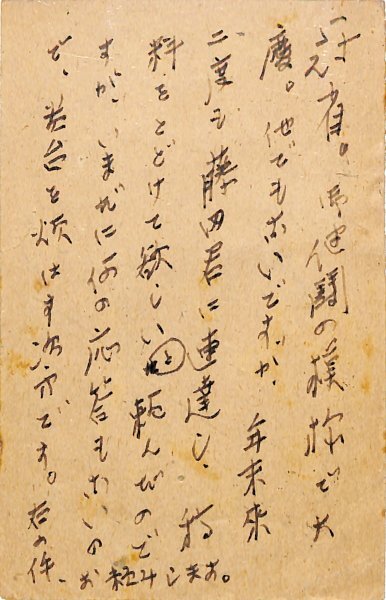 冠省。御健闘の模様で大
慶。他でもないですが 年末来
二度も藤田君に速達し、稿
料をとどけて欲しいと頼んだので
すが、いまだに何の応答もないの
で、老台を煩はす次第です。右の件、
お頼みします。